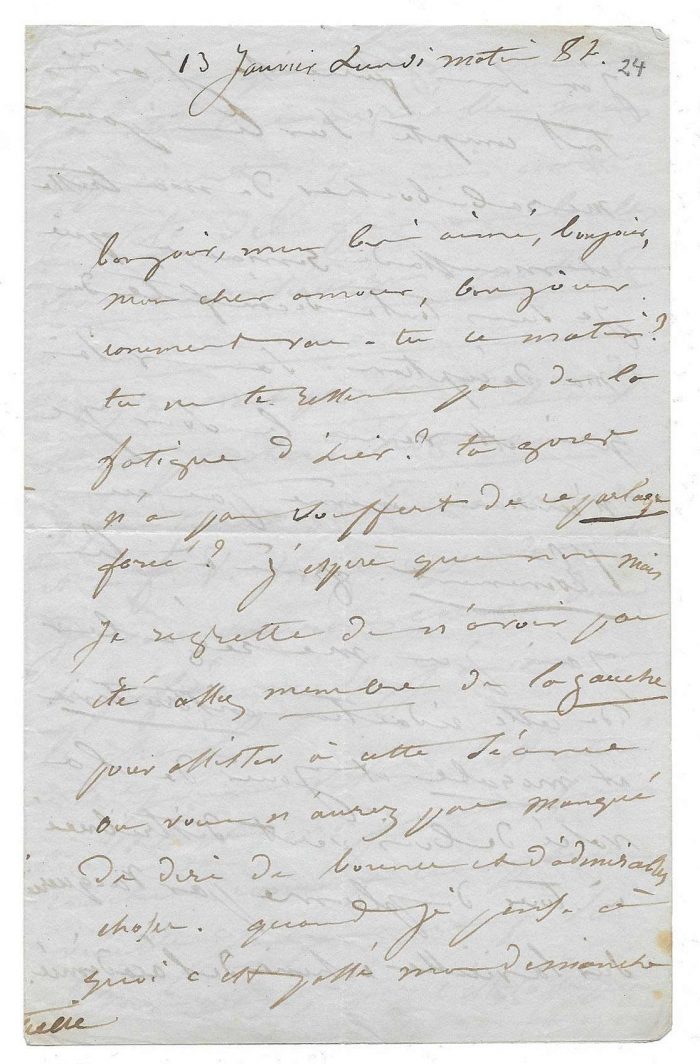 13 Janvier Lundi matin 8h. 24
bonjour, mon bien aimé, bonjour,
mon cher amour, bonjour
comment vas-tu ce matin?
tu ne te ressens pas de la
fatigue d'hier? ta gorge
n'a pas souffert de ce parlage
forcé? J'espère que non mais
Je regrette de n'avoir pas
été assez membre de la gauche
pour assister à cette séance
où vous n'aurez pas manqué
de dire de bonnes et d'admirables
choses. quand je pense à
quoi s'est passé mon dimanche